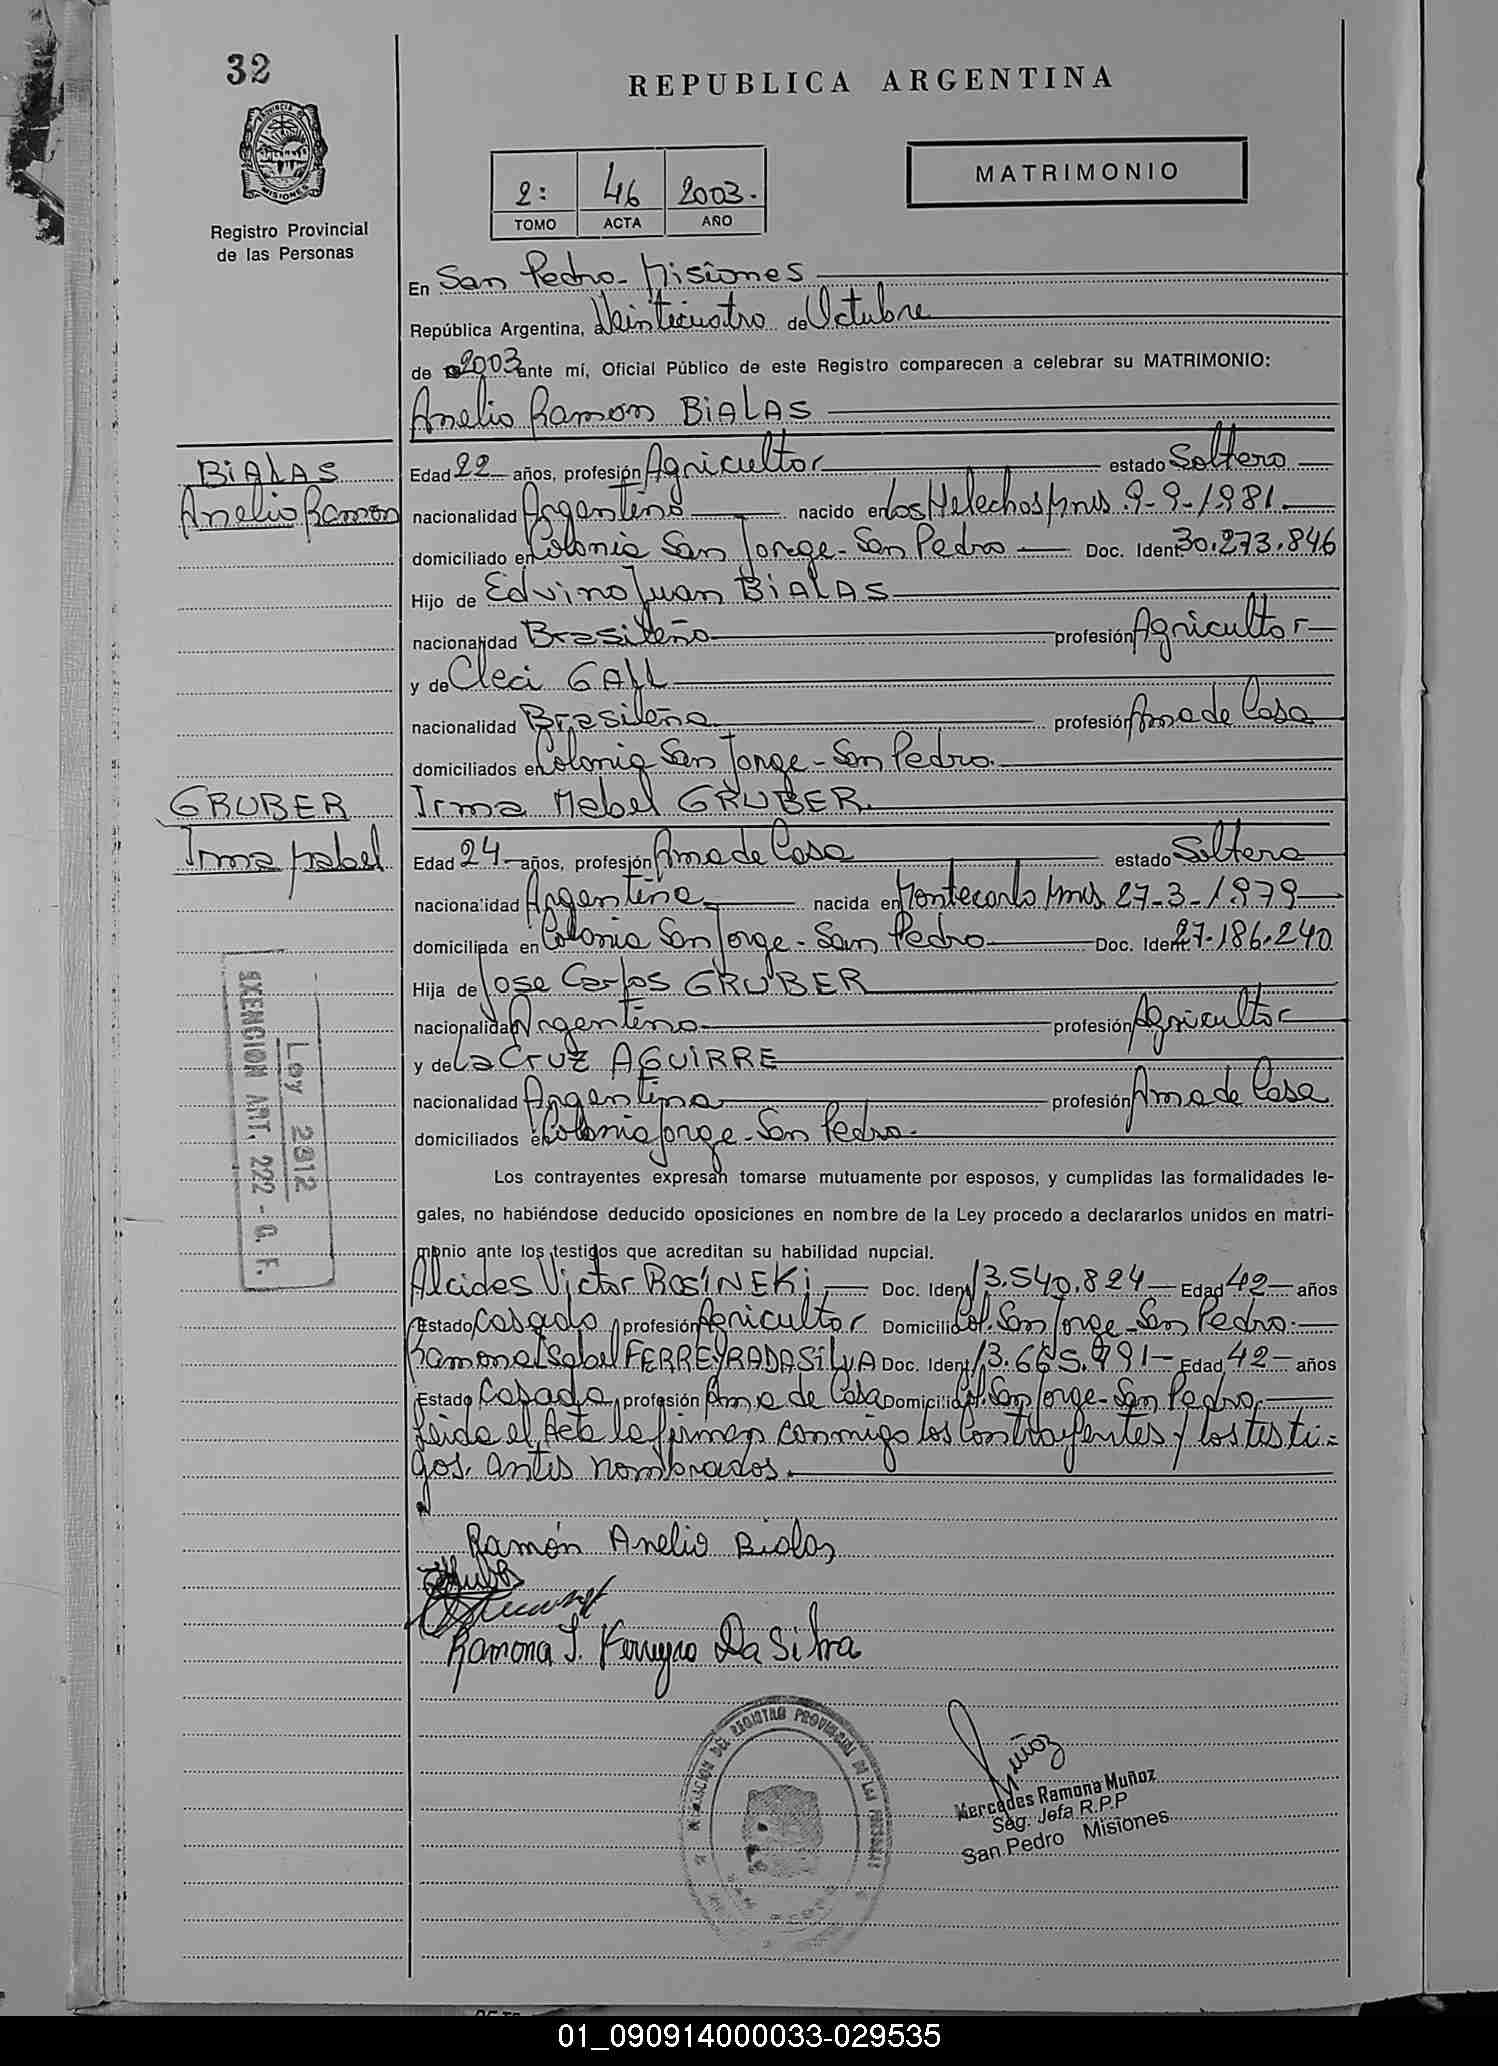 32
REPUBLICA ARGENTINA
Registro Provincial
de las Personas
2: 46 2003.
TOMO ACTA AÑO
MATRIMONIO
En San Pedro - Misiones
República Argentina, a Veinticuatro de Octubre
de 2003 ante mí, Oficial Público de este Registro comparecen a celebrar su MATRIMONIO:
Anelio Ramon BIALAS
BIALAS
Anelio Ramon
Edad 22 años, profesión Agricultor estado Soltero
nacionalidad Argentino nacido en Los Helechos Mnes 9-9-1981
domiciliado en Colonia San Jorge - San Pedro Doc. Ident. 30.273.846
Hijo de Edvino Juan BIALAS
nacionalidad Brasileño profesión Agricultor
y de Cleci GALL
nacionalidad Brasileña profesión Ama de Casa
domiciliados en Colonia San Jorge - San Pedro.
GRUBER
Irma Mabel
Irma Mabel GRUBER.
Edad 24 años, profesión Ama de Casa estado Soltera
nacionalidad Argentina nacida en Montecarlo Mnes 27-3-1979
domiciliada en Colonia San Jorge - San Pedro Doc. Ident. 27.186.240
Hija de Jose Carlos GRUBER
nacionalidad Argentino profesión Agricultor
y de La Cruz AGUIRRE
nacionalidad Argentina profesión Ama de Casa
domiciliados en Colonia Jorge - San Pedro.
EXENCION ART. 222 - C. F.
Ley 2812
Los contrayentes expresan tomarse mutuamente por esposos, y cumplidas las formalidades le-
gales, no habiéndose deducido oposiciones en nombre de la Ley procedo a declararlos unidos en matri-
monio ante los testigos que acreditan su habilidad nupcial.
Alcides Victor ROSINEKI Doc. Ident. 13.540.824 Edad 42 años
Estado Casado profesión Agricultor Domicilio Col. San Jorge - San Pedro.
Ramona Isabel FERREYRA DA SILVA Doc. Ident. 13.665.991 Edad 42 años
Estado Casada profesión Ama de Casa Domicilio Col. San Jorge - San Pedro.
Leida el Acta la firman conmigo los Contrayentes y los testi=
gos, antes nombrados.
Ramón Anelio Bialas
Ramona I. Ferreyra Da Silva
Muñoz
Mercedes Ramona Muñoz
Seg. Jefa R.P.P
San Pedro Misiones
01_090914000033-029535